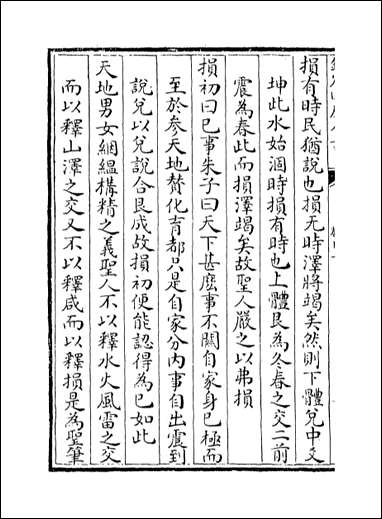 損有時民猶說也損无時澤將竭矣然則下體兌中爻
坤此水始涸時損有時也上體艮為冬春之交二前
震為春此而損澤竭矣故聖人嚴之以弗損
損初曰已事朱子曰天下甚麽事不關自家身已極而
至於参天地賛化育都只是自家分内事自出震到
說兌以兌說合艮成故損初便能認得為已如此
天地男女絪緼構精之義聖人不以釋水火風雷之交
而以釋山澤之交又不以釋咸而以釋損是為聖筆